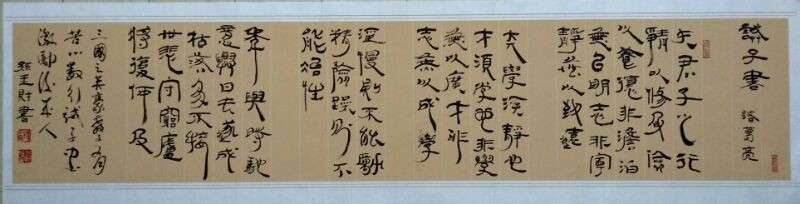 誡子書 諸葛亮
夫君子之行
靜以修身儉
以養德非澹泊
無以明志非寧
靜無以致遠
夫學須靜也
才須學也非學
無以廣才非
志無以成學
淫慢則不能勵
精險躁則不
能治性
年與時馳
意與日去遂成
枯落多不接
世悲守窮廬
將復何及
三國之英豪
苦心教引誡子書
激勵後來人
玉財書